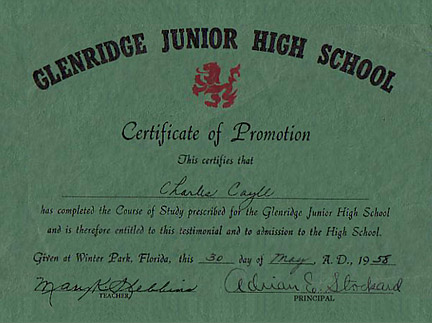 GLENRIDGE JUNIOR HIGH SCHOOL
Certificate of Promotion
This certifies that
Charles Cayll
has completed the Course of Study prescribed for the Glenridge Junior High School
and is therefore entitled to this testimonial and to admission to the High School.
Given at Winter Park, Florida, this 30 day of May, A. D., 1958
Mary K. Stebbins Adrian E. Stockard
TEACHER PRINCIPAL